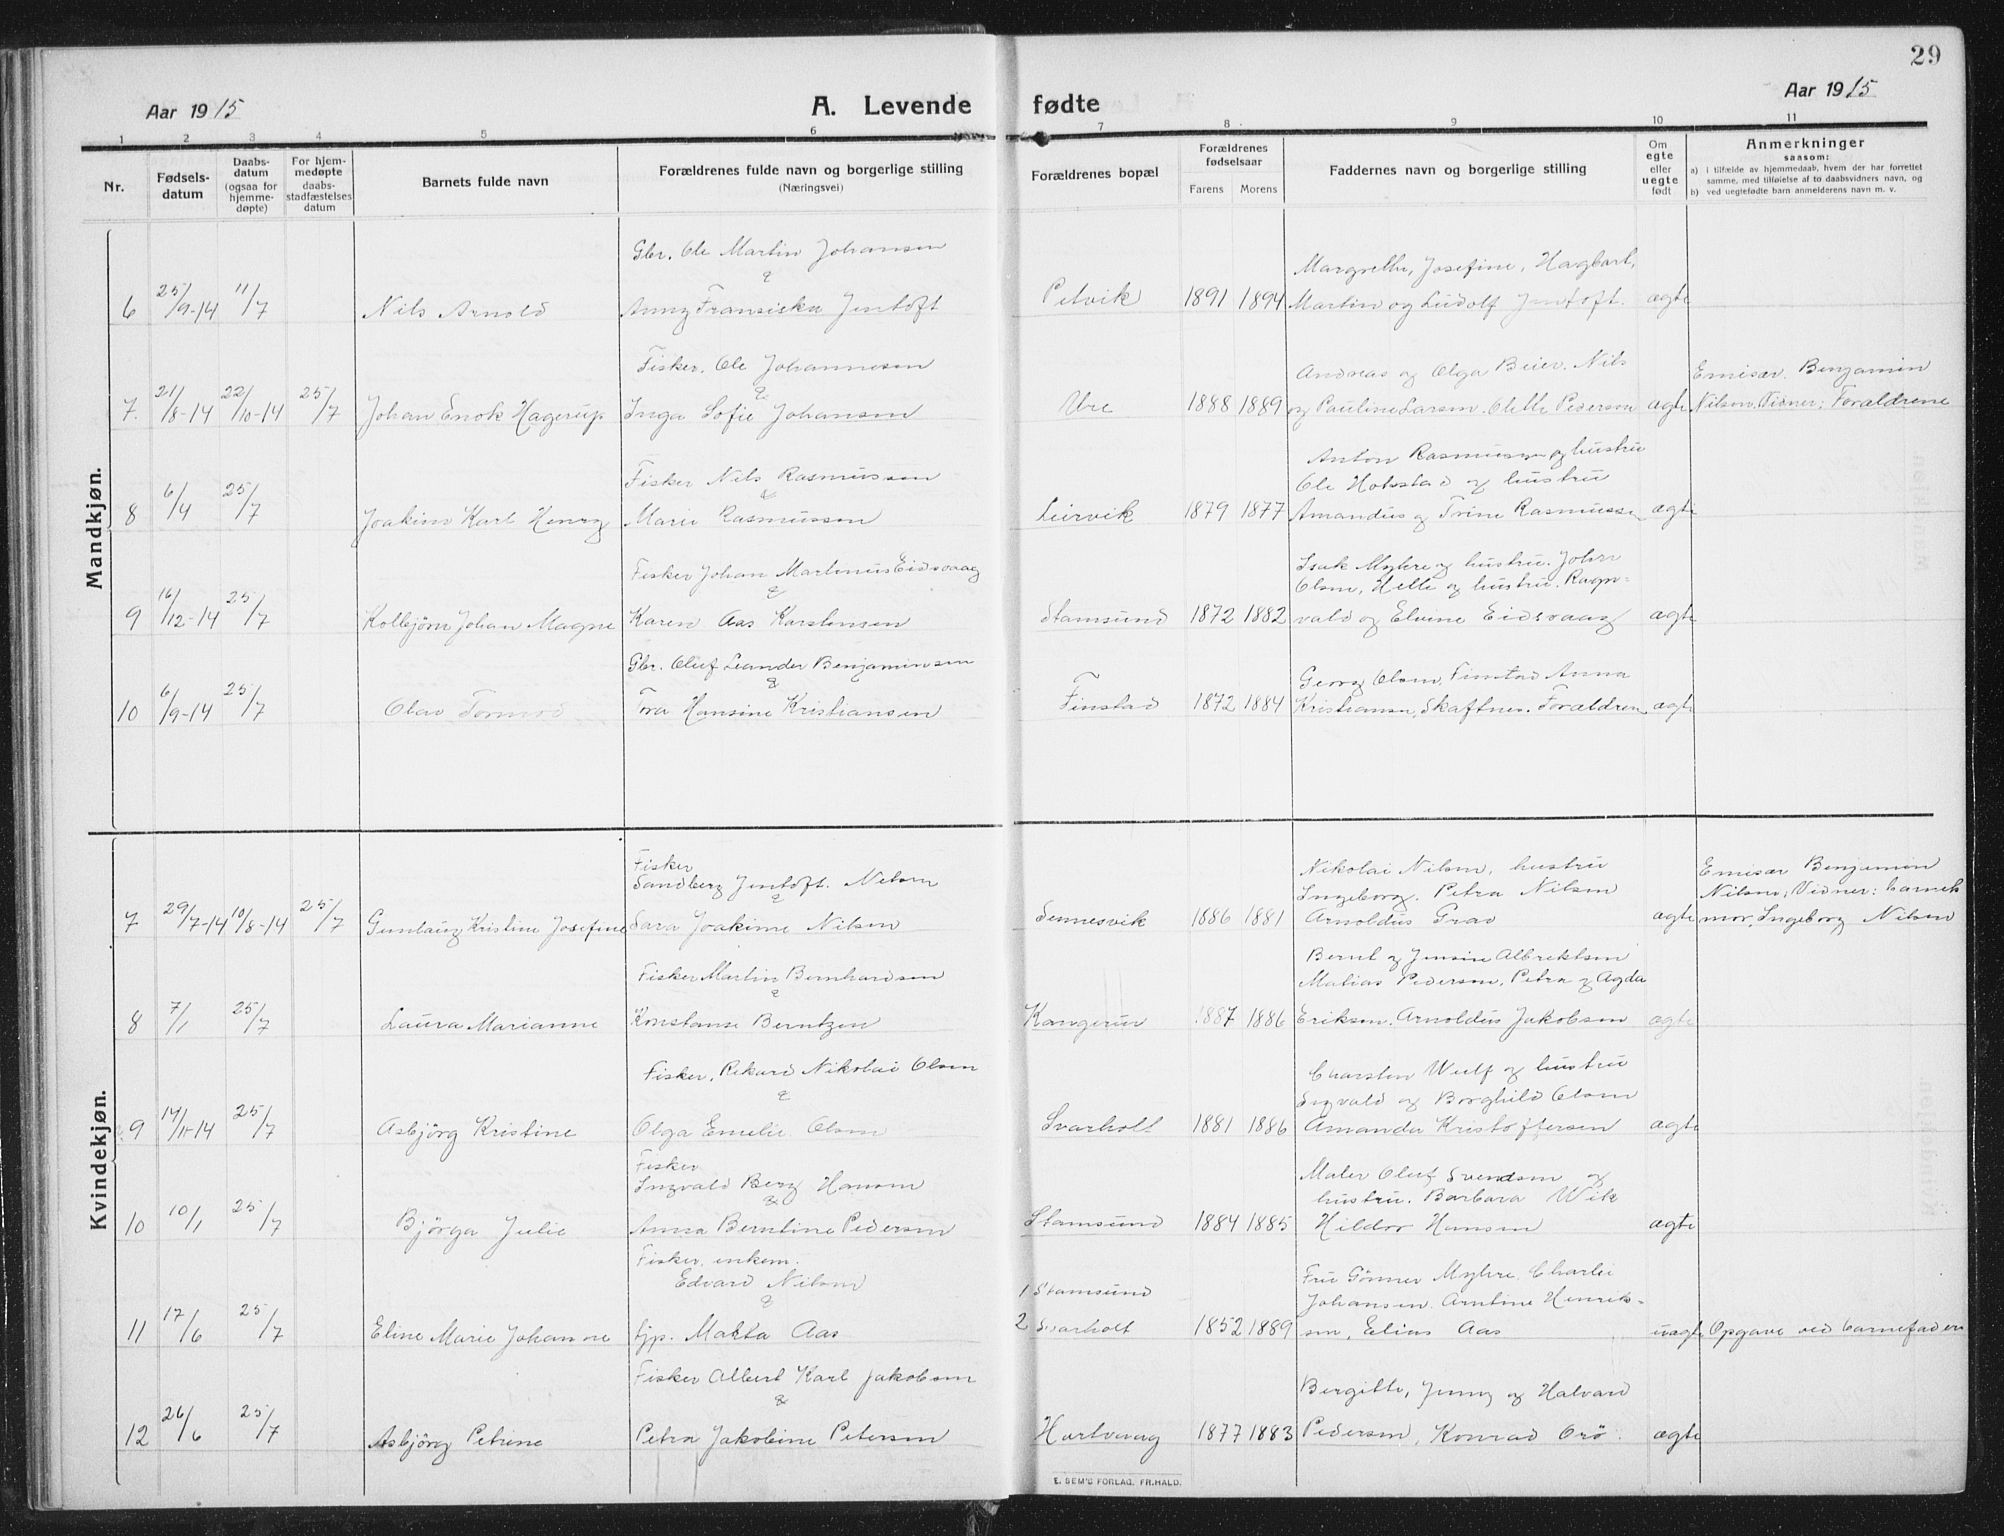 29
Aar 1915 A. Levende fødte Aar 1915
1 2 3 4 5 6 7 8 9 10 11
Nr.
Fødsels-
datum
Daabs-
datum
(ogsaa for
hjemme-
døpte)
For hjem-
medøpte
daabs-
stadfæstelses
datum
Barnets fulde navn
Forældrenes fulde navn og borgerlige stilling
(Næringsvei)
Forældrenes bopæl
Forældrenes
fødselsaar
Farens Morens
Faddernes navn og borgerlige stilling
Om
egte
eller
uegte
født
Anmerkninger
saasom:
a) i tilfælde av hjemmedaab, hvem der har forrettet
samme, med tilføielse af to daabsvidners navn, og
b) ved uegtefødte barn anmelderens navn m. v.
Mandkjøn.
Gbr. Ole Martin Johansen
&
6 25/9-14 11/7 Nils Arnold Anny Fransiska Jentoft
Petvik 1891 1894
Margrethe, Josefine, Hagbart,
Martin og Ludolf Jentoft. ægte
Fisker. Ole Johannesen
&
7. 21/8-14 22/10-14 25/7 Johan Enok Hagerup Inga Sofie Johansen
Ure 1888 1889
Andreas og Olga Beier. Nils
og Pauline Larsen. Olette Pedersen ægte
Emisær. Benjamin
Nilsen, Vidner: Forældrene
Fisker Nils Rasmussen
&
8 6/4 25/7 Joakim Karl Henry Marie Rasmussen
Leirvik 1879 1877
Anton Rasmussen og hustru
Ole Holsstad og hustru
Amandus og Trine Rasmussen ægte
Fisker Johan Martinus Eidsvaag
&
9 16/12-14 25/7 Kolbjörn Johan Magne Karen Aas Karstensen
Stamsund 1872 1882
Isak Myhre og hustru. Johan
Olsen, Helle og hustru. Ragn-
vald og Elvine Eidsvaag ægte
Gbr. Oluf Leander Benjaminsen
&
10 6/9-14 25/7 Olav Tormod Tora Hansine Kristiansen
Finstad 1872 1884
Georg Olsen, Finstad Anna
Kristiansen, Skaftnes. Forældren ægte
Kvindekjøn.
Fisker
Sandberg Jentoft. Nelsen
&
7 29/7-14 10/8-14 25/7 Gunlaug Kristine Josefine Sara Joakime Nilsen
Sennesvik 1886 1881
Nikolai Nilsen, hustru
Ingeborg. Petra Nilsen
Arnoldus Grav ægte
Emisær Benjamin
Nilsen; Vidner: barnets
mor, Ingeborg Nilsen
Fisker Martin Bernhardsen
&
8 7/1 25/7 Laura Marianne Konstanse Berntzen
Kangerur 1887 1886
Bernt og Jensine Albrektsen
Matias Pedersen, Petra og Agda
Eriksen. Arnoldus Jakobsen ægte
Fisker, Rikard Nikolai Olsen
&
9 14/11-14 25/7 Asbjörg Kristine Olga Emelie Olsen
Svarholt 1881 1886
Charsten Wulf og hustru
Sigvald og Borghild Olsen
Amanda Kristoffersen ægte
Fisker
Ingvald Berg Hansen
&
10 10/1 25/7 Björga Julie Anna Berntine Pedersen
Stamsund 1884 1885
Maler Oluf Svendsen og
hustru. Barbara Wik
Hildor Hansen ægte
Fisker, enkem.
Edvard Nilsen
&
11 17/6 25/7 Eline Marie Johanne tjp. Makta Aas
1 Stamsund
2 Svarholt 1852 1889
Fru Gönner Myhre. Charlie
Johansen. Arntine Henrik-
sen, Elias Aas uægte Opgave ved barnefaderen
Fisker Albert Karl Jakobsen
&
12 26/6 25/7 Asbjörg Petrine Petra Jakobine Petersen
Hartvaag 1877 1883
Bergitte, Jenny og Halvard
Pedersen, Konrad Orö. ægte
E. SEM'S FORLAG, FR.HALD.